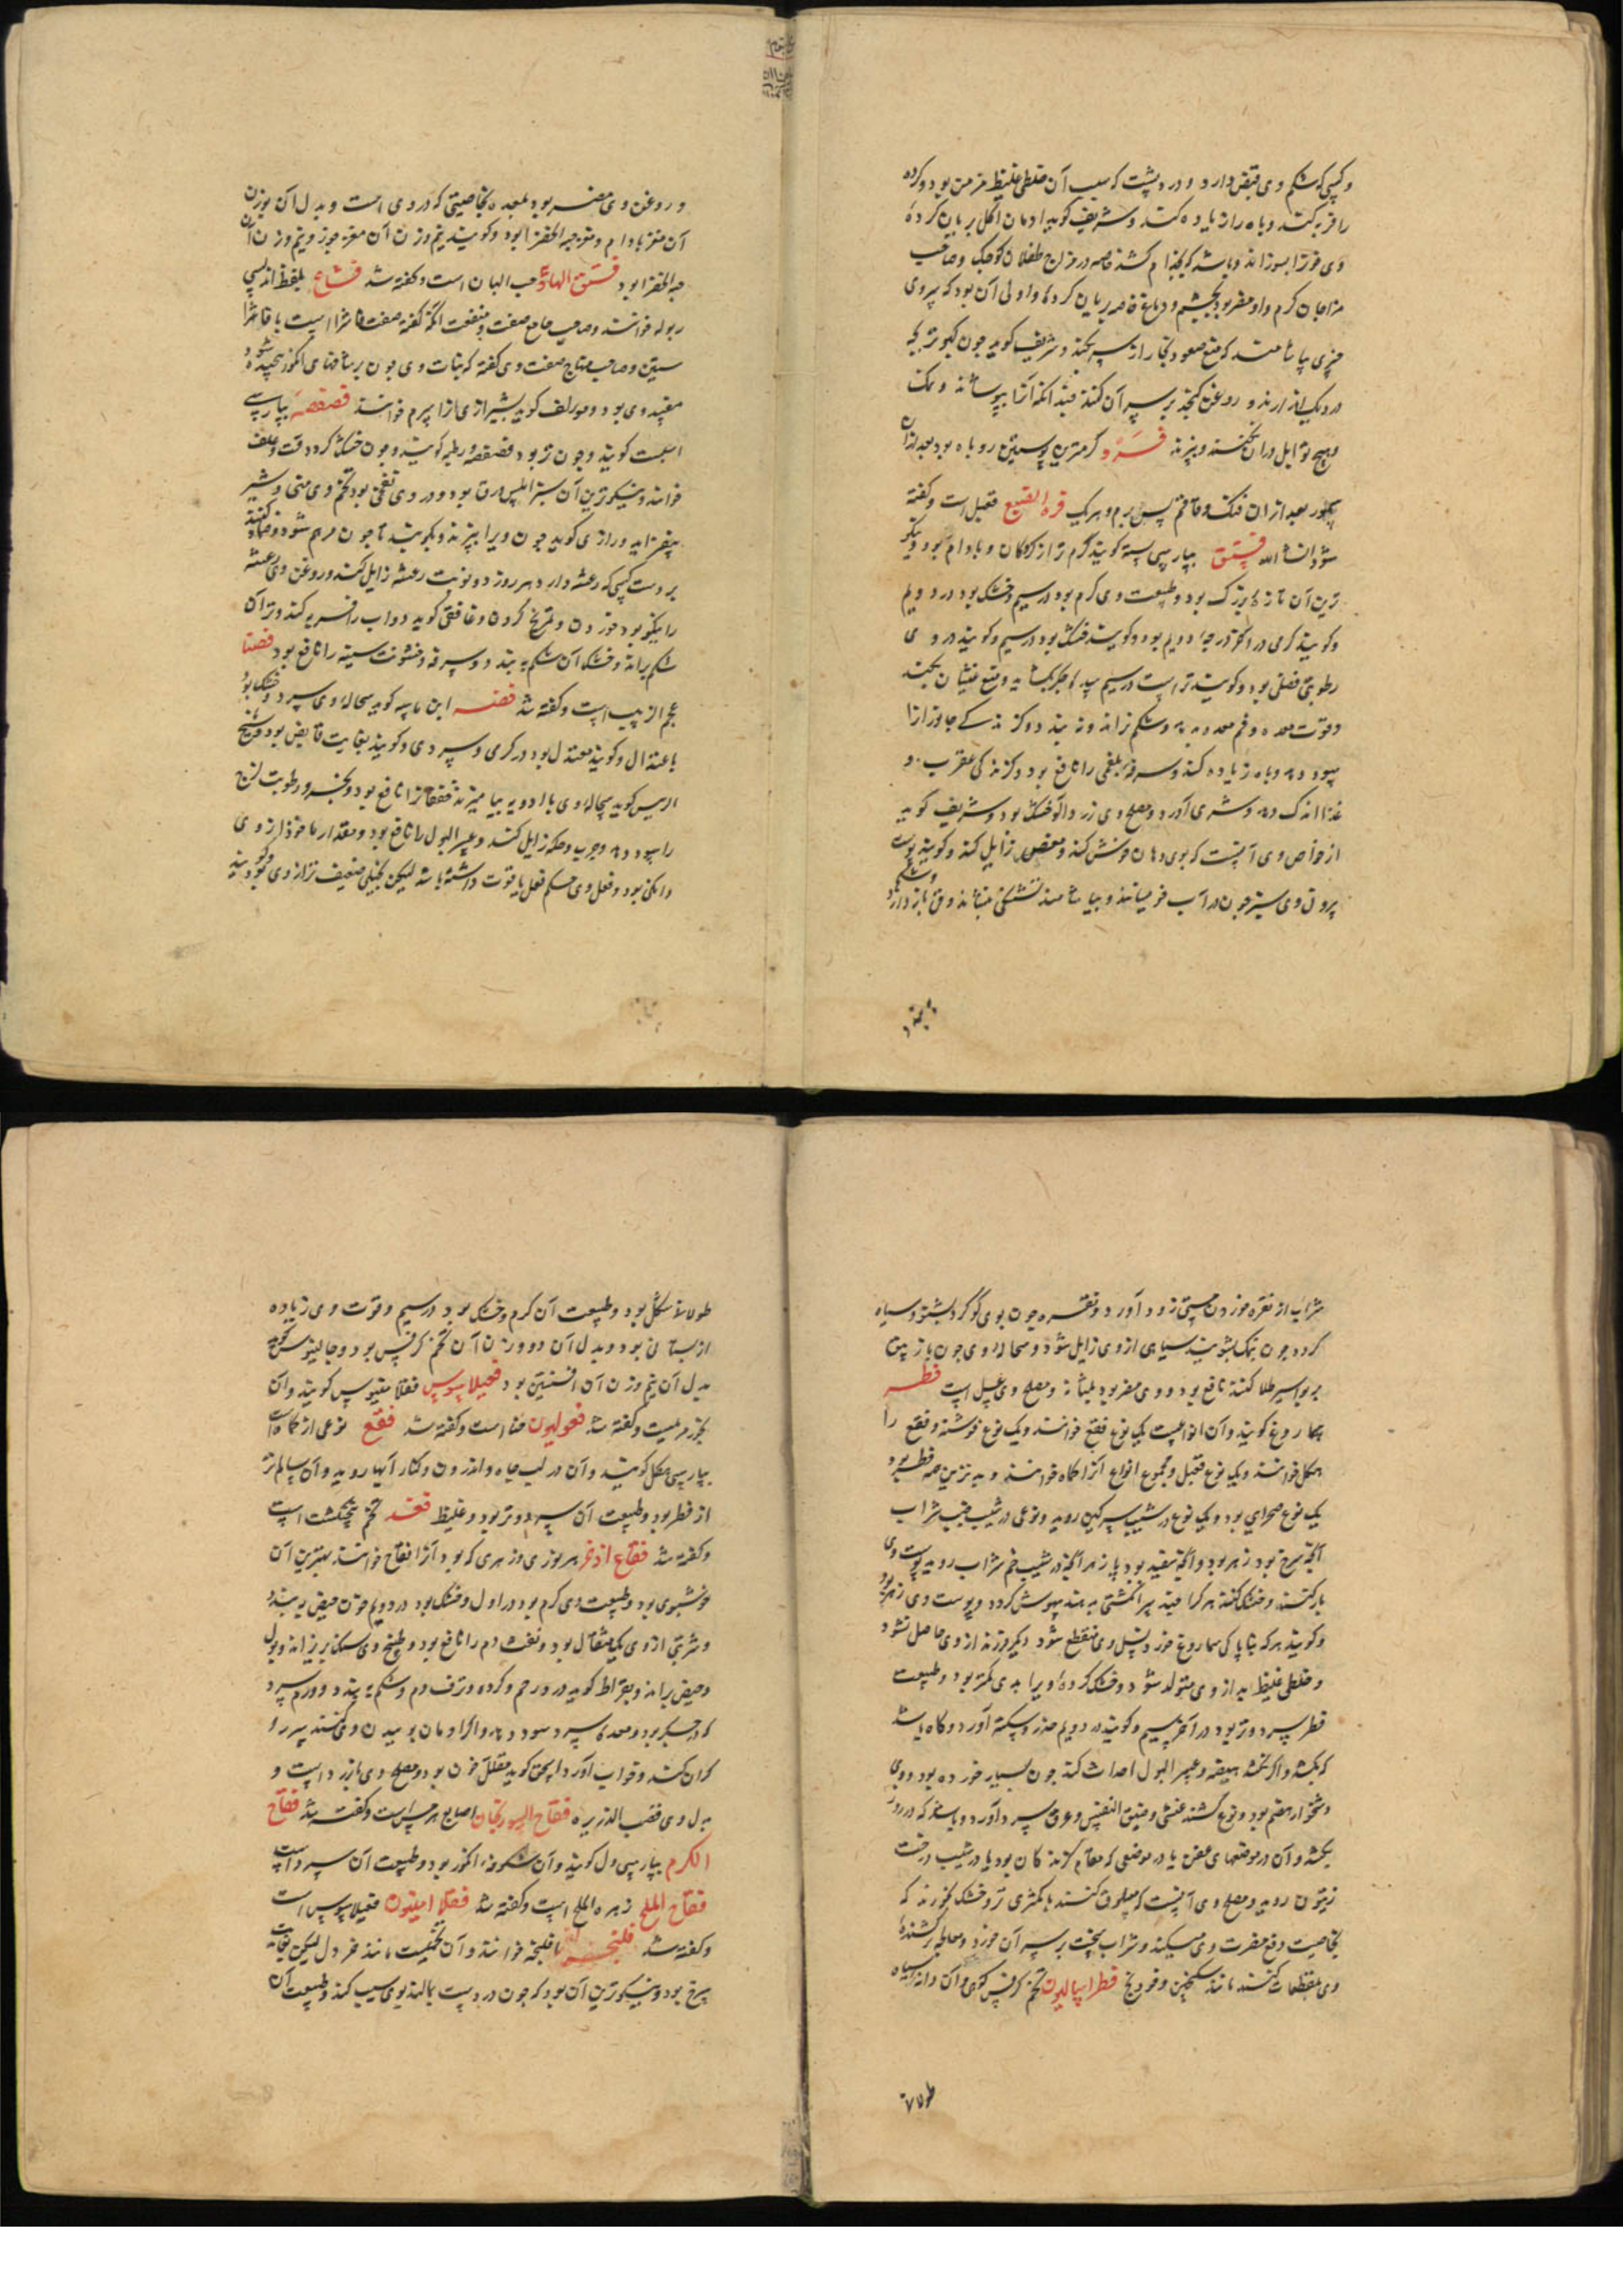 و کسی که شکم وی قبض دارد و درد پشت که سبب آن خلطی غلیظ مزمن بود و کرده
را فربه کند و باه را زیاده کند و شریف کوید ادمان اکل بریان کرده
وی خون را بسوزاند و باشد که بجذام کشد خاصه در مزاج طفلان کوچک و صاحب
مزاجان کرم و او مضر بود بچشم و دماغ خاصه بریان کرده و اولی آن بود که بر وی
چیزی بیاشامند که منع صعود بخار از سر بکند و شریف کوید چون کبوتر بچه
در دیک اندازند و روغن کنجد بر سر آن کنند چندانکه آنرا بپوشاند و نمک
وهیچ توابل در آن نکنند و بپزند فرو کرمترین پوستین روباه بود بعد از آن
سمور بعد از آن فنک و قاقم پس بره و هر یک قرة القیع فقبل است و کفته
شود انشاء الله فستق بپارسی پسته کویند کرم تر از کردکان و بادام بود و نیکو
ترین آن تازه بزرک بود و طبیعت وی کرم بود در سیم و خشک بود در دویم
و کویند کرمی در آخر درجه دویم بود و کویند خشک بود در سیم و کویند در وی
رطوبتی فضلی بود و کویند تر است در سیم سده جکر بکشاید و منع غثیان بکند
و قوت معده و فم معده بدهد و شکم نراند و نه بندد و کزندکی جانوران را
سود دهد و باه زیاده کند و سرفه بلغمی را نافع بود و کزندکی عقرب و
غذا اندک دهد و شری آورد و مصلح وی زردآلو خشک بود و شریف کوید
از خواص وی آنست که بوی دهان خوش کند و مغص زایل کند و کویند پوست
بیرون وی سبز چون در آب خیسانند و بیاشامند تشنکی بنشاند و قی باز دارد و شکم
ببندد
و روغن وی مضر بود بمعده بخاصیتی که در وی است و بدل آن بوزن
آن مغز بادام و مغز حبة الخضرا بود و کویند نیم وزن آن مغز جوز و نیم وزن آن
حبة الخضرا بود فستق الهاوی حب البان است و کفته شد فشاغ بلفظ اندلسی
ربوله خوانند و صاحب جامع صفت و منفعت آنکه کفته صفت فاشرا است یا فاشر
ستین و صاحب منهاج صفت وی کفته که نبات وی چون بر شاخهای انکور پیچیده شود
مفسد وی بود و مولف کوید شیرازی آنرا سرم خوانند فصفصه بپارسی
اسبست کویند و چون تر بود فصفصه و رطبه کویند و چون خشک کردد قت و علف
خوانند و نیکوترین آن سبز املس ورق بود و در وی نفخی بود تخم وی منی و شیر
بیفزاید و رازی کوید چون ویرا بپزند و بکوبند تا چون مرهم شود و ضماد کنند
بر دست کسی که رعشه دارد هر روز دو نوبت رعشه زایل کند و روغن وی رعشه
را نیکو بود خوردن و تمریخ کردن و غافقی کوید دواب را فربه کند و تر آن
شکم براند و خشک آن شکم ببندد و سرفه و خشونت سینه را نافع بود فصتا
عجم الزبیب است و کفته شد فضه ابن ماسه کوید سحاله وی سرد و خشک بود
باعتدال و کویند معتدل بود در کرمی و سردی و کویند بغایت قابض بود و شیخ
الرئیس کوید سحاله وی با ادویه بیامیزند خفقان را نافع بود و بخر و رطوبت لزج
را سود دهد و جرب و حکه زایل کند و عسر البول را نافع بود و مقدار ماخوذ از وی
دانکی بود و فعل وی حکم فعل یاقوت داشته باشد لیکن بخیلی ضعیف تر از وی بود و کویند
شراب از نقره خوردن مستی زود آورد و نقره چون بوی کوکرد بشنود سیاه
کردد چون نمک بشویند سیاهی از وی زایل شود و سحاله وی چون با زیبق
بر بواسیر طلا کنند نافع بود و وی مضر بود بمثانه و مصلح وی عسل است فطر
سماروغ کویند و آن انواعست یک نوع فقع خوانند و یک نوع غوشنه و فقع را
هکل خوانند و یک نوع فقبل و مجموع انواع آنرا کماه خوانند و بدترین همه فطر بود
یک نوع صحرایی بود و یک نوع در شیب سرکین روید و نوعی در شیب خم شراب
آنکه سرخ بود زهر بود و آنکه سفید بود یا زهر آنکه در شیب خم شراب روید پوست وی
باز کنند و خشک کنند هر کرا قدر سر انکشتی بدهند بیهوش کردد و پوست وی زهر بود
و کویند هر که بناپاکی سماروغ خورد نسل وی منقطع شود دیکر فرزند از وی حاصل نشود
و خلطی غلیظ بد از وی متولد شود و خشک کرده ویرا بدی کمتر بود و طبیعت
فطر سرد و تر بود در آخر سیم و کویند در دویم خدر و سکته آورد و کاه باشد
که بکشد و اکر نکشد هیضه و عسر البول احداث کند چون بسیار خورده بود و وی
دشخوار هضم بود و نوع کشنده غشی و ضیق النفس و عرق سرد آورد و باشد که در روز
بکشد و آن در موضعهای عفن یا در موضعی که مقام کزندکان بود یا در شیب درخت
زیتون روید و مصلح وی آنست که مسلوق کنند با کمثری تر و خشک خورند که
بخاصیت دفع مضرت وی میکند و شراب سخت بر سر آن خورد و معالجه کشنده
وی بمقطعات کنند مانند سکنجبین و فودنج فطر اسالیون تخم کرفس کوهی و آن دانه سیاه
طولا
طولانی شکل بود و طبیعت آن کرم و خشک بود در سیم و قوت وی زیاده
از بستانی بود و بدل آن دو وزن آن تخم کرفس بود و جالینوس کوید
بدل آن نیم وزن آن افسنتین بود فعیلاسوس فقلامینوس کویند و آن
بخور مریمست و کفته شد فغولیون حنا است و کفته شد فقع نوعی از کماه است
بپارسی هکل کویند و آن در لب چاه و اندرون و کنار آبها روید و آن سالم تر
از فطر بود و طبیعت آن سرد و تر بود و غلیظ فقد تخم پنجنکشت است
و کفته شد فقاح اذخر هر بوزی و زهری که بود آنرا فقاح خوانند بهترین آن
خوشبوی بود و طبیعت وی کرم بود در اول و خشک بود در دویم خون حیض ببندد
و شربتی از وی یک مثقال بود و نفث دم را نافع بود و طبیخ وی سنک بریزاند و بول
و حیض براند و بقراط کوید درد رحم و کرده و نزف دم و شکم ببندد و ورم سرد
که در جکر بود و معده سرد سود دهد و اکر ادمان بوییدن وی کنند سر را
کران کند و خواب آورد و اسحق کوید مقلل خون بود و مصلح وی مازرد است و
بدل وی قصب الذریره فقاح السورنجان اصابع هرمس است و کفته شد فقاح
الکرم بپارسی مل کویند و آن شکوفه انکور بود و طبیعت آن سرد است
فقاح الملح زهره الملح است و کفته شد فقلامینوس فعیلاسوس است
و کفته شد فلنجه افلنجه خوانند و آن تخمیست مانند خردل لیکن بغایت
سرخ بود و نیکوترین آن بود که چون در دست بمالند بوی سیب کند و طبیعت آن